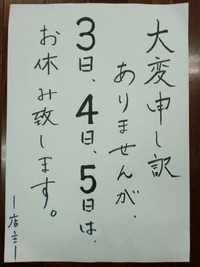 大変申し訳
ありませんが、
3日、4日、5日は、
お休み致します。
ー店主ー